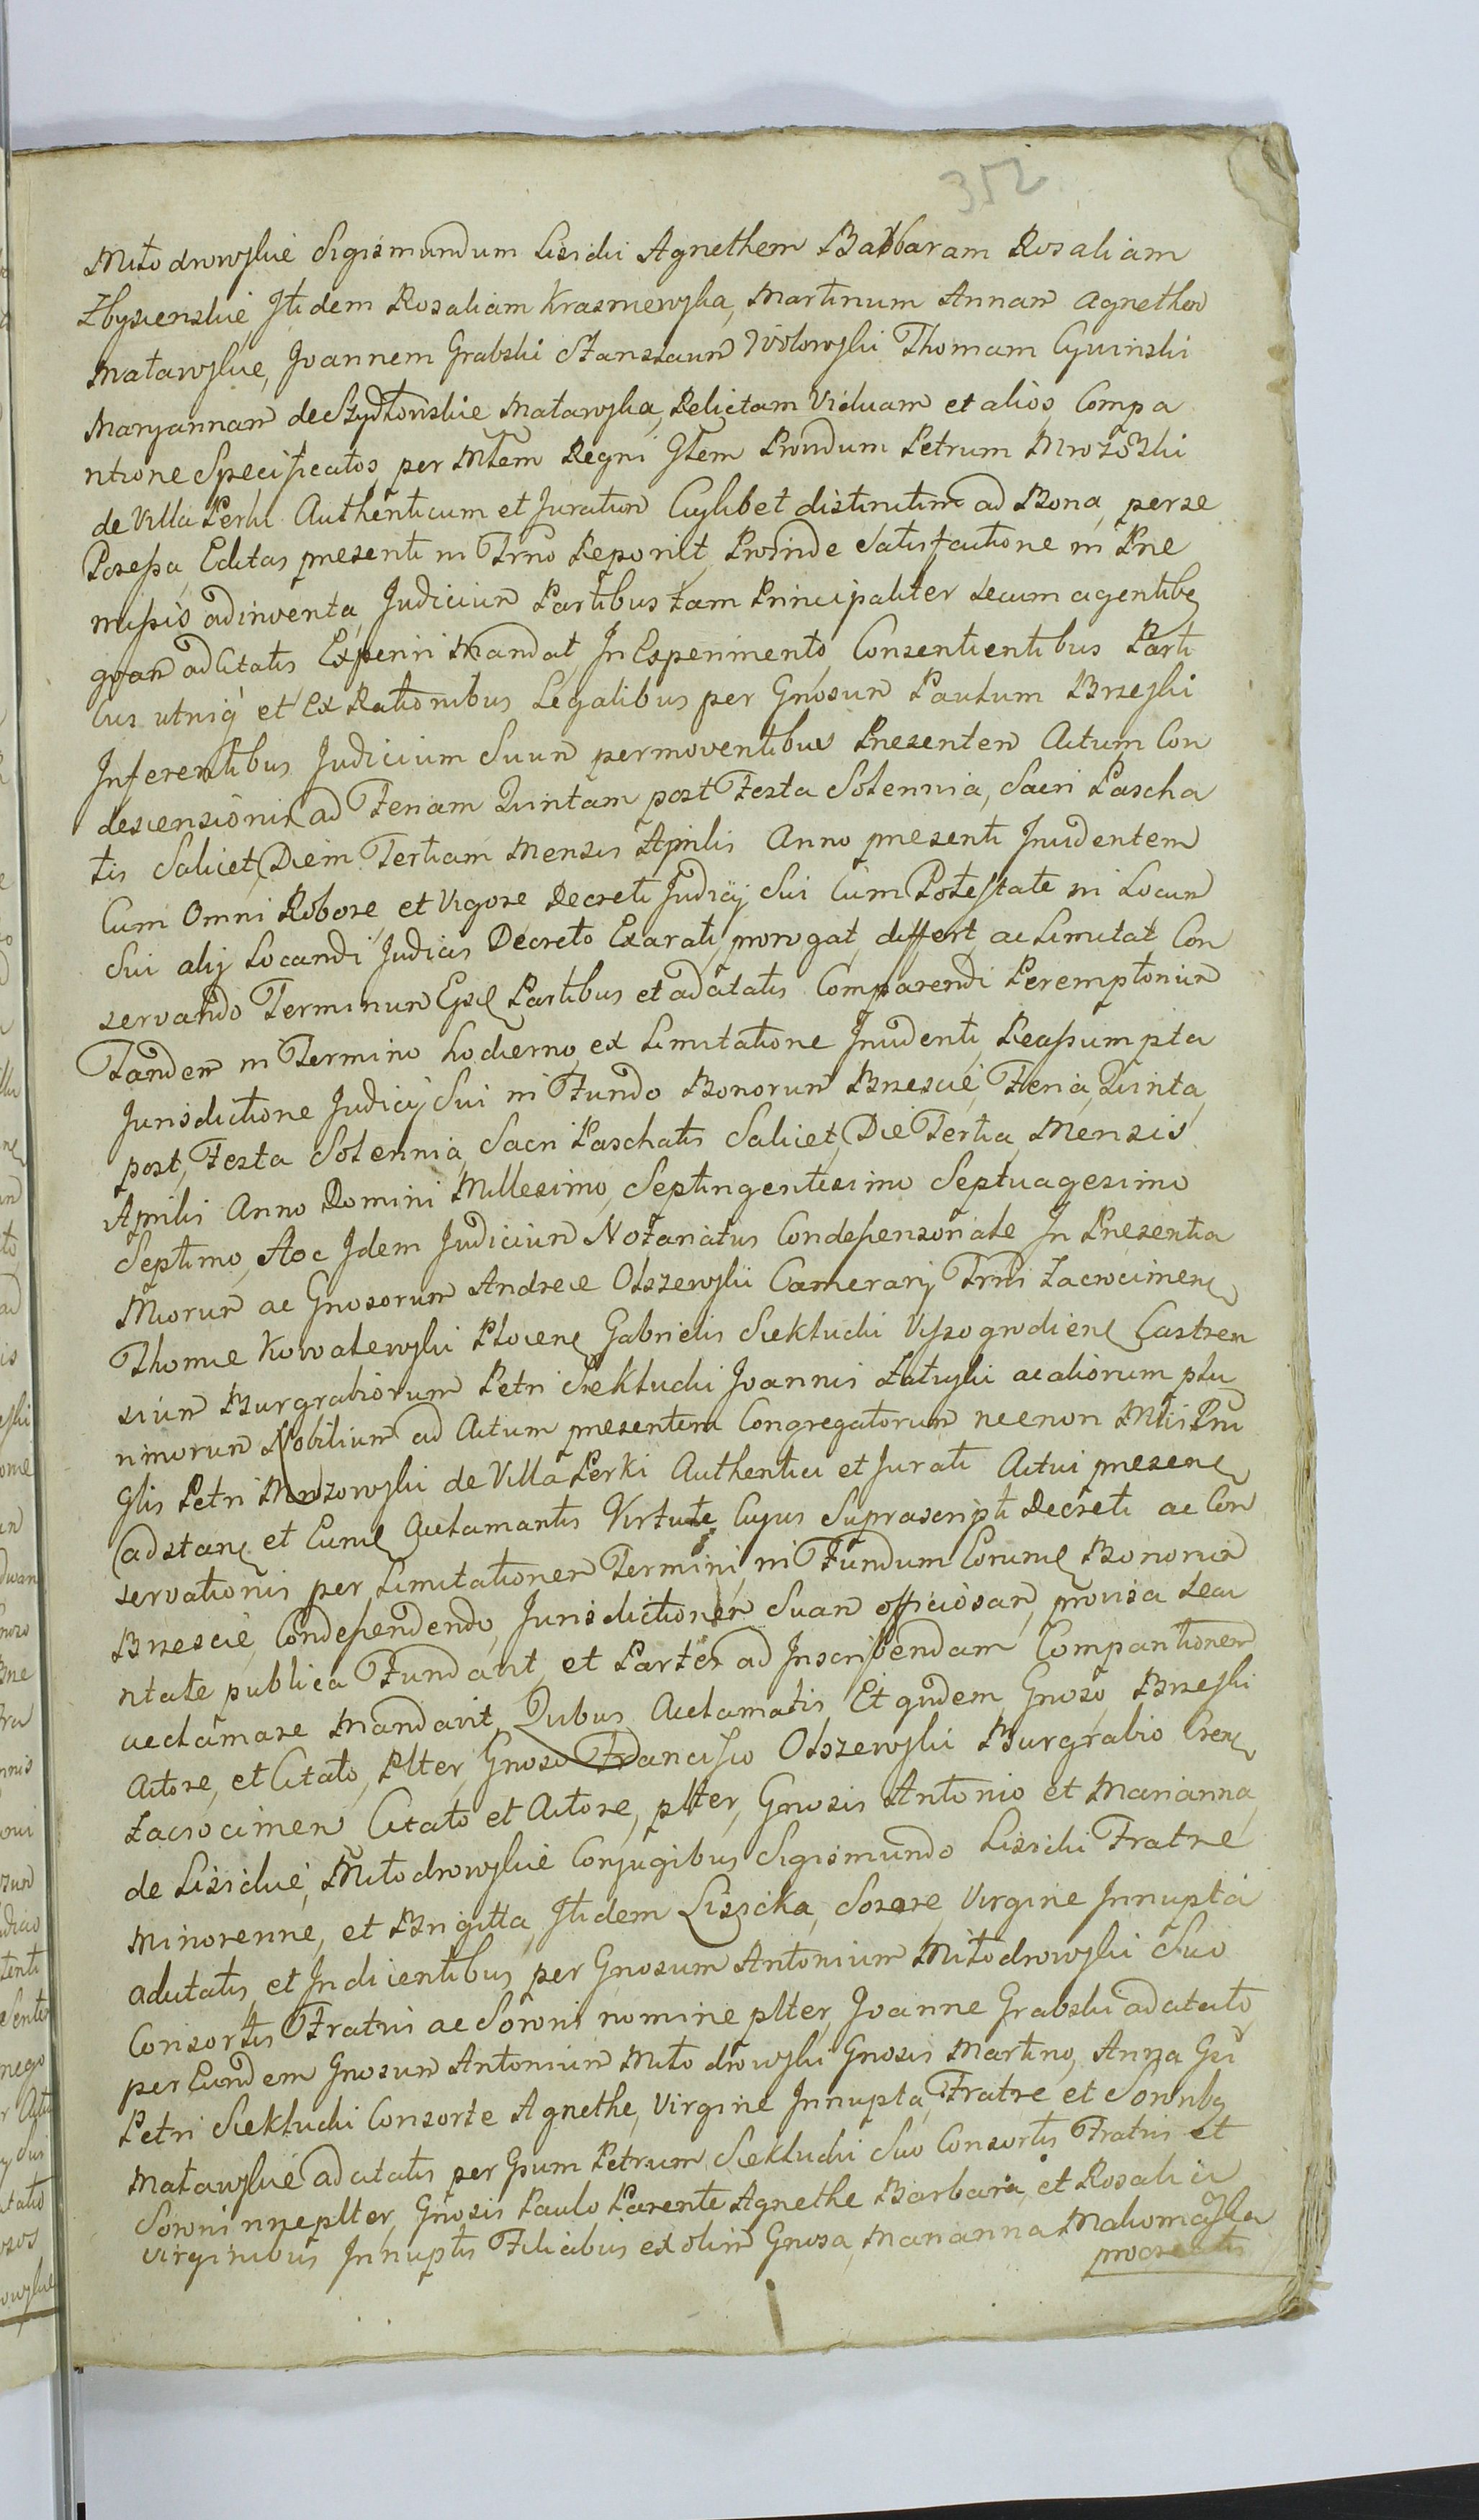 352
Miłodrowskie Sigismundum Lisicki Agnethem Barbaram Rosaliam
Zbysienskie Itidem Rosaliam Krasniewska, Martinum Annam Agnethem
Małarvskie, Joannem Grabski Stanslaum Wołowski Thomam Cywinski
Maryannam de Szydłowskie Małarvska, Relictam Viduam et alios Compa
ritione Specificatos, per Mtem Regni Gtem Providum Petrum Mrozoski
de Villa Perki Authenticum et Juratum Cuylibet distinctim ad Bona, per se
Posessa, Editas presenti in Trno Reponit, Proinde Satisfactione in Pre
missis adinventa, Judicium Partibus tam Principaliter secum agentibq
qvam adCitatis Experiri Mandat, In Experimento, Consentientibus Parti
bus utriq et Ex Rationibus Legalibus per Gnosum Paulum Brzeski
Inferentibus Judicium Suum permoventibus Presentem Actum Con
descensionis ad Feriam Quintam post Festa Solennia, Sacri Pascha
tis Scilicet, Diem Tertiam Mensis Aprilis Anno presenti Incidentem
Cum Omni Robore, et Vigore Decreti Judicij Sui Cum Potestate in Locum
Sui alij Locandi Judicis Decreto Exarati, prorogat, differt ac Limitat Con
servando Terminum Partibus et adcitatis Comparendi Peremptorium
Tandem in Termino hodierno, ex Limitatione Incidenti, Reassumpta
Jurisdictione Judicij Sui in Fundo Bonorum Brzescie, Feria, Quinta,
post, Festa Solennia, Sacri Paschatis Scilicet, Die Tertia, Mensis
Aprilis Anno Domini Millesimo, Septingentesimo Septuagesimo
Septimo, Hoc Idem Judicium Notariatus Condescensoriale In Presentia
Mcorum ac Gnosorum Andree Olszewskij Camerarij Trni Zacrocimens
Thome Kowalewski Plocens Gabrielis Siekłucki Vyszogrodiens Castren
sium Burgrabiorum Petri Siekłucki Joannis Załuski ac aliorum plu
rimorum Nobilium ad Actum presentem Congregatorum necnon Mtis Rni
Gtis Petri Mrozowski de Villa Perki Authentici et Jurati Actui presens
adstans et Eume Acclamantis Virtute, Cujus Suprascripti Decreti ac Con
servationis per Limitationem Termini, in Fundum Eorume Bonorum
Brzescie, Condescendendo, Jurisdictionem Suam officiosam, provisa Secu
ritate publica Fundavit, et Partes ad Inscribendam Comparitionem
acclamare Mandavit, Quibus Acclamatis, Et quidem Gnoso, Brzeski
Actore, et Citato, Plter, Gnoso Francisco Olszewski Burgrabio Crens
Zacrocimen Citato et Actore, plter, Gnosis Antonio et Marianna,
de Lisickie, Miłodrowskie Conjugibus Sigismundo Lisicki Fratre
Minorenne, et Brigitta, Itidem Lisicka, Sorore, Virgine Innupta
adcitatis, et Indicentibus, per Gnosum Antonium Miłodrowski Suo
Consortis Fratris ac Sororis nomine plter, Joanne Grabski adcitato,
per Eundem Gnosum Antonium Miłodrowski Gnosis Martino, Anna Gsi
Petri Siekłucki Consorte Agnethe, Virgine Innupta, Fratre et Sororibq
Małarvskie adcitatis per Gsum Petrum Siekłucki Suo Consortis Fratris et
Sororis nne plter, Gnosis Paulo Parente Agnethe Barbara, et Rosalia
Virginibus Innuptis Filiabus ex olim Gnosa, Marianna Makomaska
procreatis